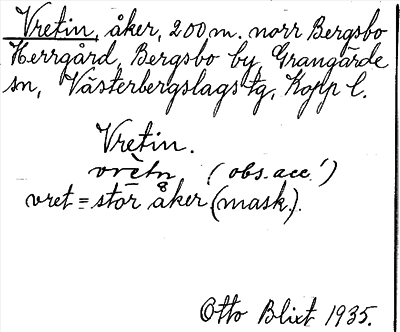 Vretin, åker, 200 m. norr Bergsbo
Herrgård, Bergsbo by, Grangärde
sn, Västerbergslags tg, Kopp l.
Vretin.
vrètn̥ (obs. acc.!)
vret = stor åker (mask.).
Otto Blixt 1935.